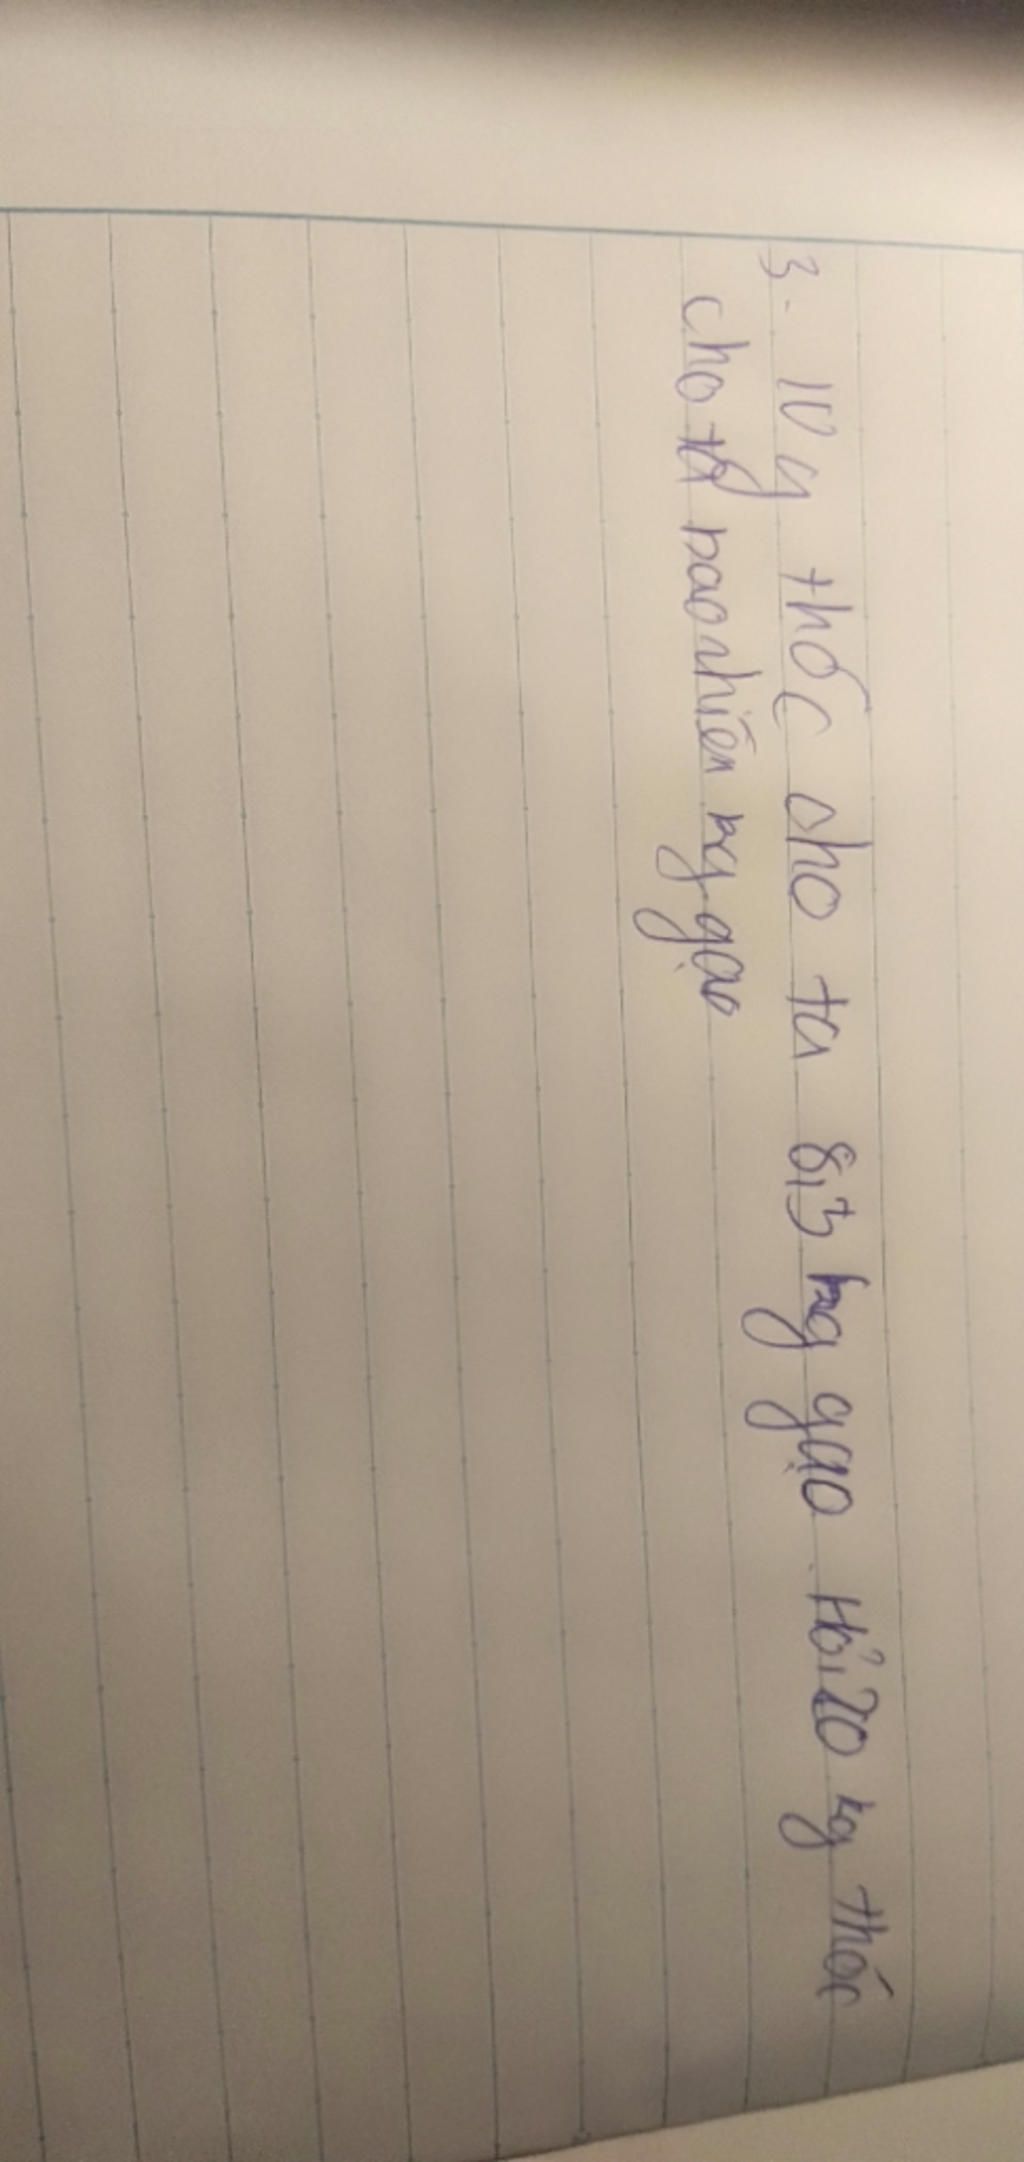 3. 10 y thóc cho ta 8,3 kg gạo. Hỏi 20 kg thóc
cho ta bao nhiên kg gạo